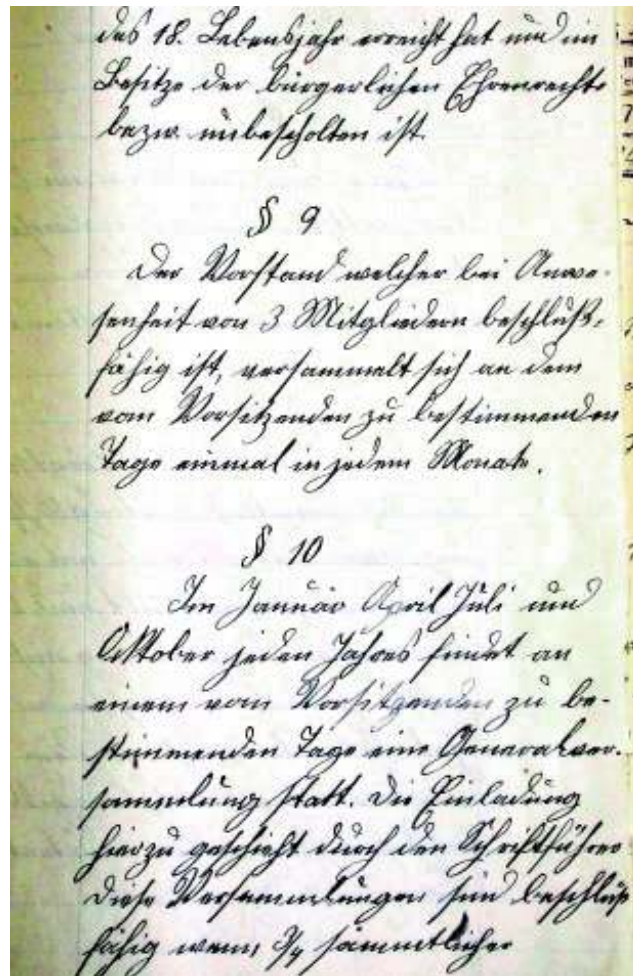 das 18. Lebensjahr erreicht hat und im
Besitze der bürgerlichen Ehrenrechte
bezw. unbescholten ist.
§ 9
Der Vorstand welcher bei Anwe-
senheit von 3 Mitgliedern beschluß-
fähig ist, versammelt sich an dem
vom Vorsitzenden zu bestimmenden
Tage einmal in jedem Monate.
§ 10
Im Januar April Juli und
Oktober jeden Jahres findet an
einem vom Vorsitzenden zu be-
stimmenden Tage eine Generalver-
sammlung statt. Die Einladung
hierzu geschieht durch den Schriftführer
Diese Versammlungen sind beschluß
fähig wenn 3/4 sämmtlicher